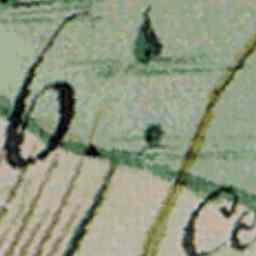 6
Ce